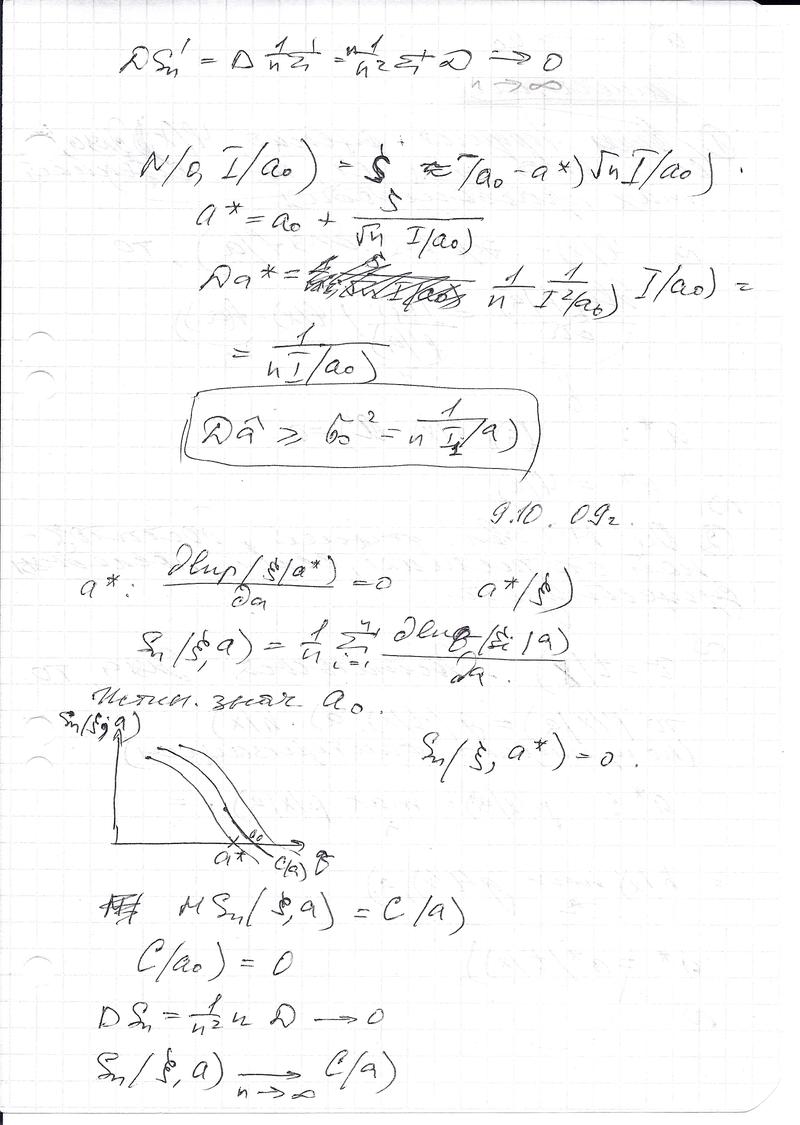 DSn' = D 1/n Σ' = 1/n² Σ D → 0
n → ∞
N(0, I(a₀)) = ξ ≈ (a₀ - a*) √n I(a₀).
a* = a₀ + ξ / (√n I(a₀))
Da* = 1/n 1/I²(a₀) I(a₀) =
= 1 / (n I(a₀))
Dâ ≥ σ₀² = 1 / (n I₁(a))
9.10.09г.
a*: ∂ln p(ξ|a*) / ∂a = 0 a*(ξ)
Sn(ξ, a) = 1/n Σ i=1 n ∂ln (ξi | a) / ∂a.
Истин. знач. a₀.
Sn(ξ, a)
Sn(ξ, a*) = 0.
a* a₀ C(a)
MSn(ξ, a) = C(a)
C(a₀) = 0
DSn = 1/n² n D → 0
Sn(ξ, a) → n → ∞ C(a)